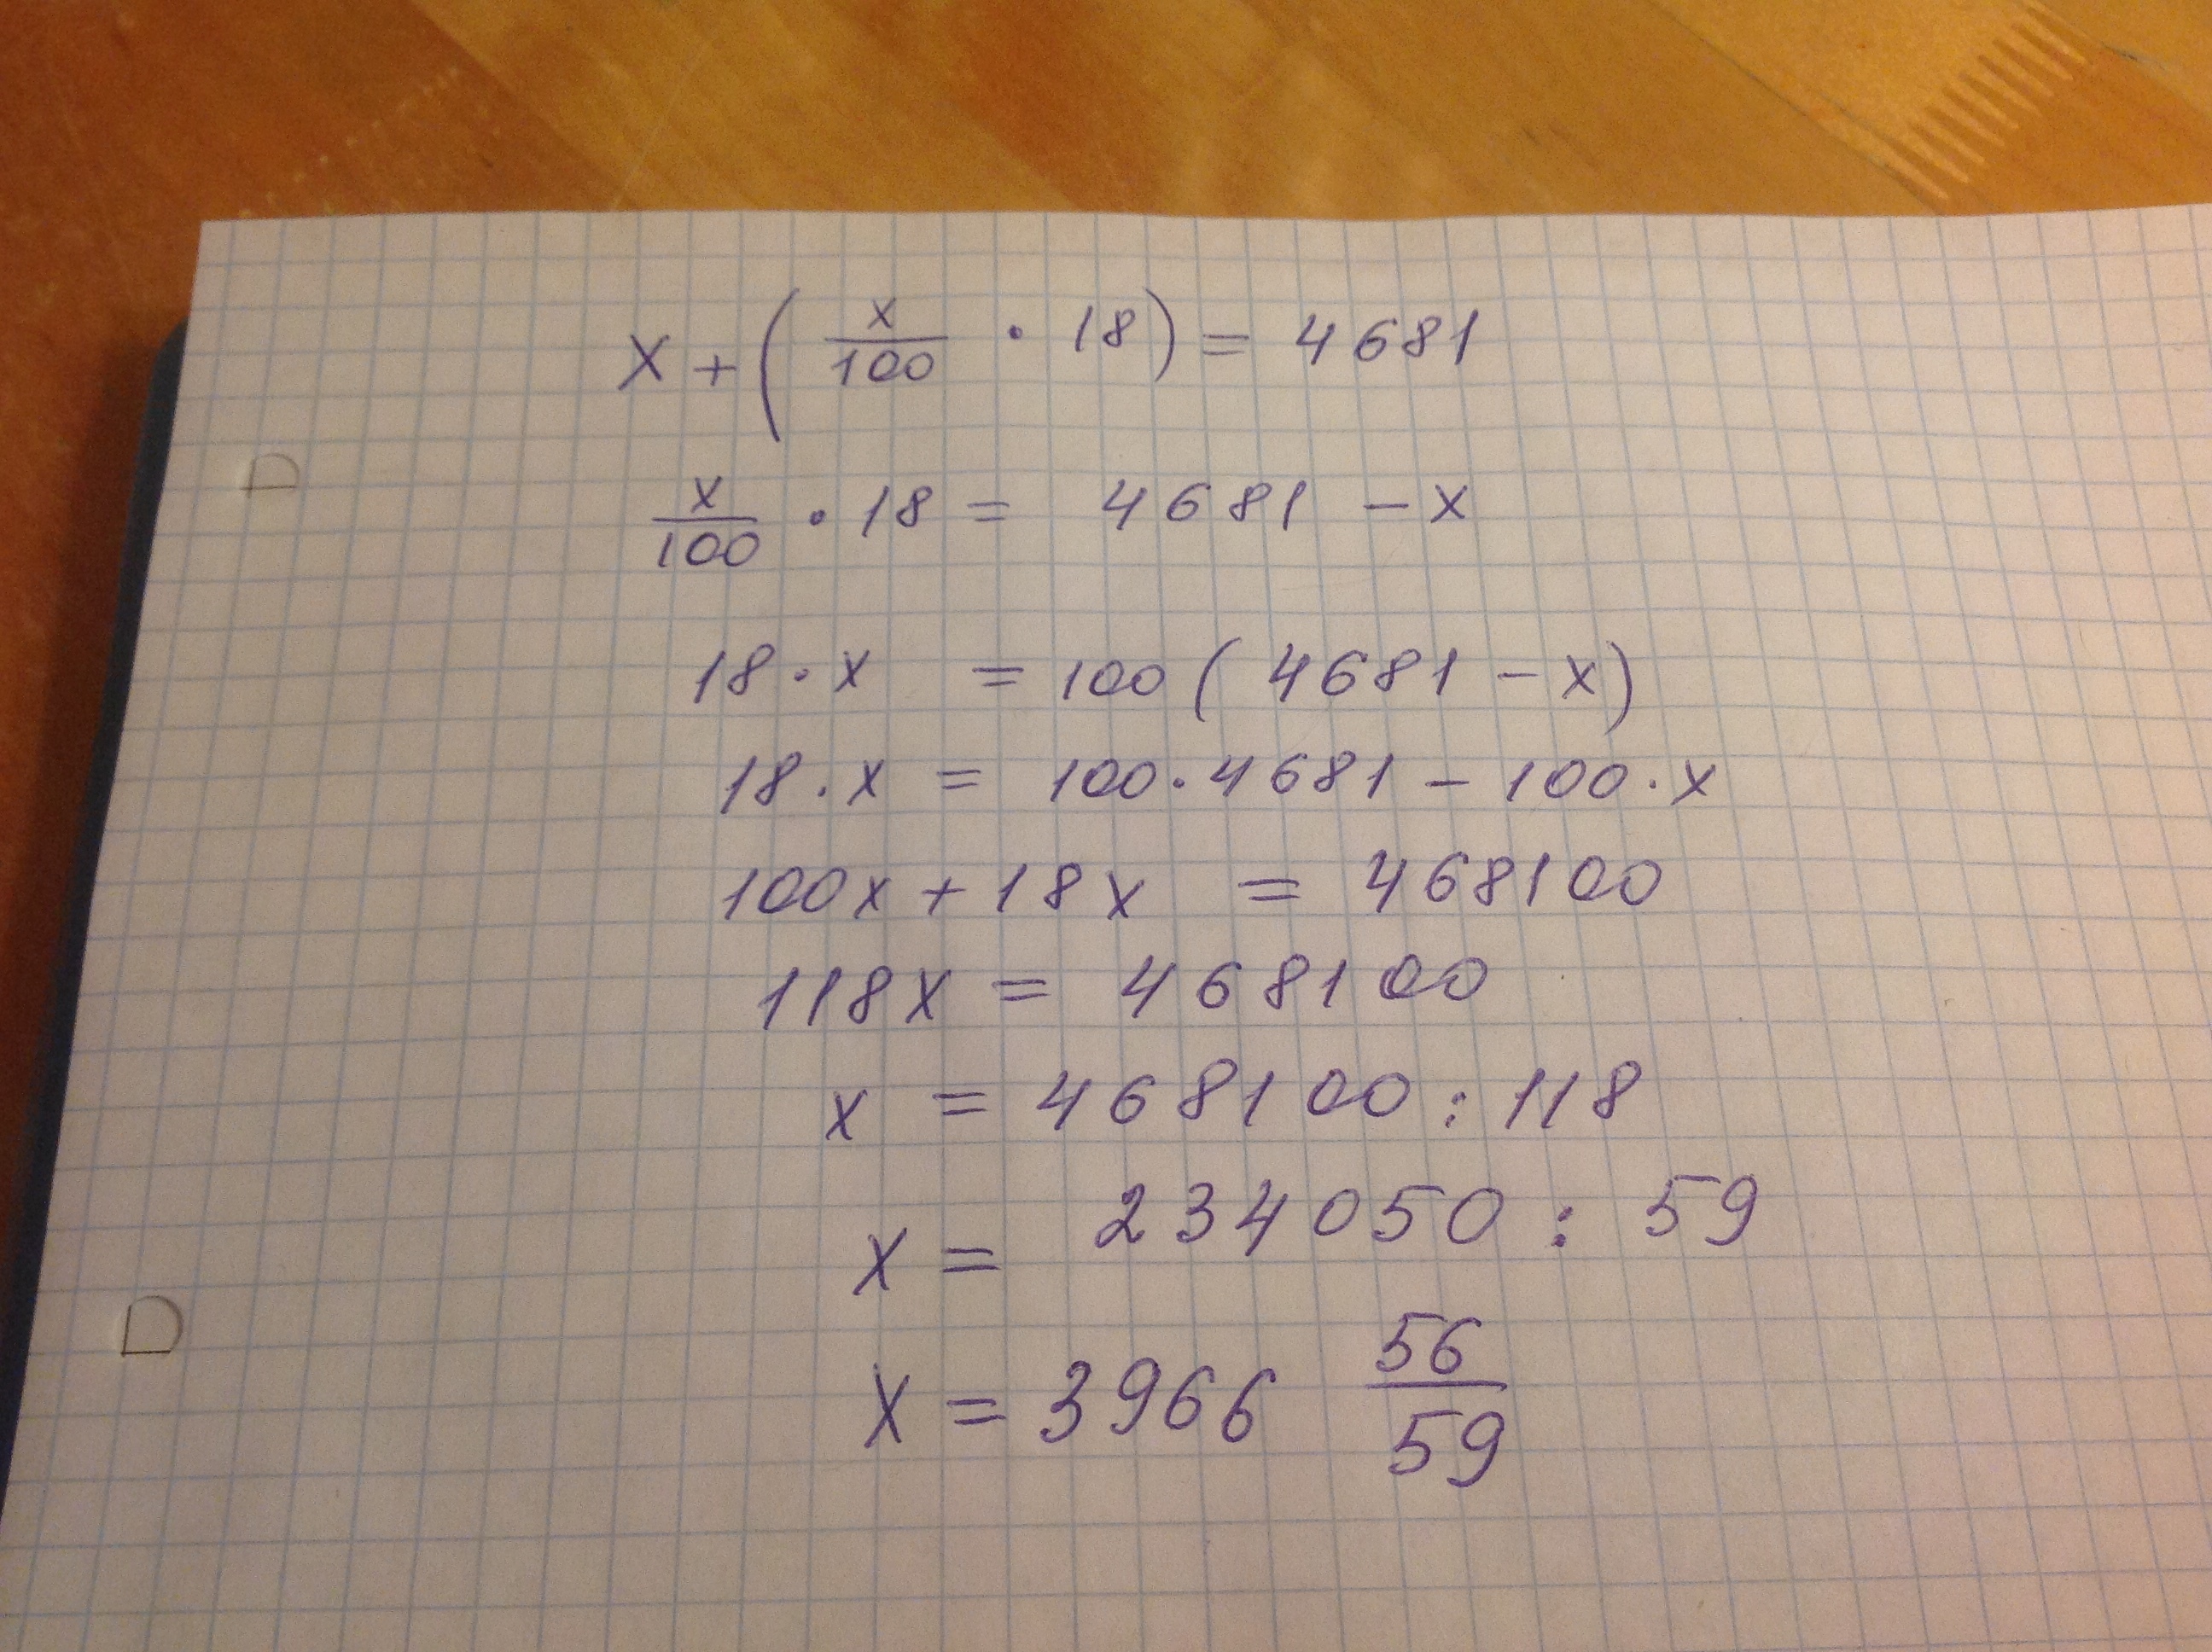 x + ( x/100 · 18 ) = 4681
x/100 · 18 = 4681 - x
18 · x = 100 ( 4681 - x )
18 · x = 100 · 4681 - 100 · x
100x + 18x = 468100
118x = 468100
x = 468100 : 118
x = 234050 : 59
x = 3966 56/59